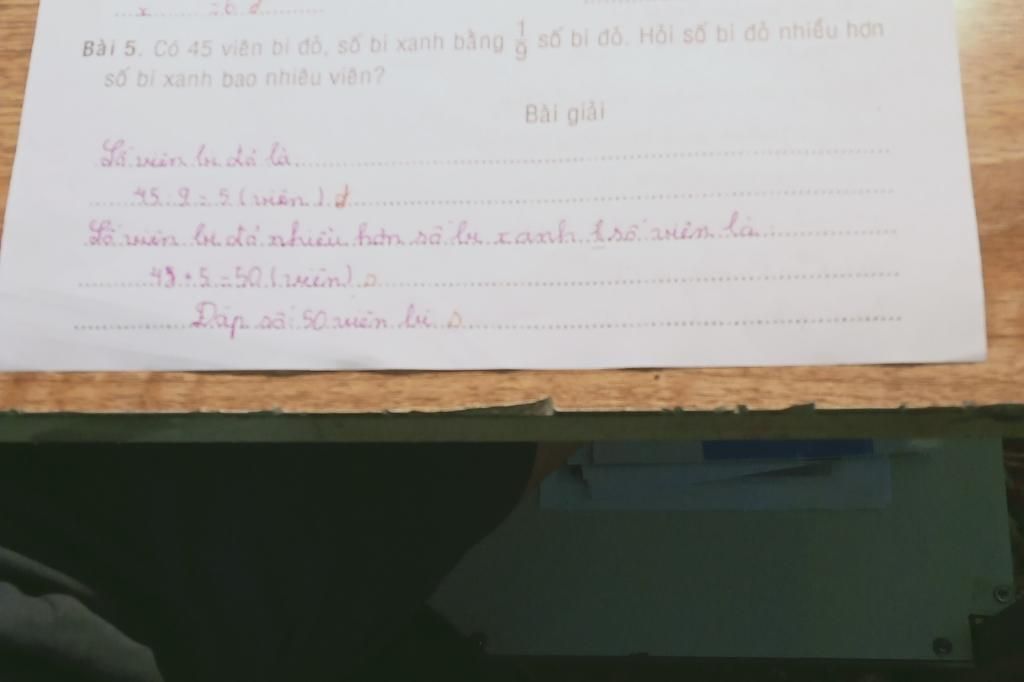 x = 6 đ
Bài 5. Có 45 viên bi đỏ, số bi xanh bằng 1/9 số bi đỏ. Hỏi số bi đỏ nhiều hơn
số bi xanh bao nhiêu viên?
Bài giải
Số viên bi đỏ là
45 : 9 = 5 (viên) đ
Số viên bi đỏ nhiều hơn số bi xanh số viên là:
45 + 5 = 50 (viên) s
Đáp số: 50 viên bi s